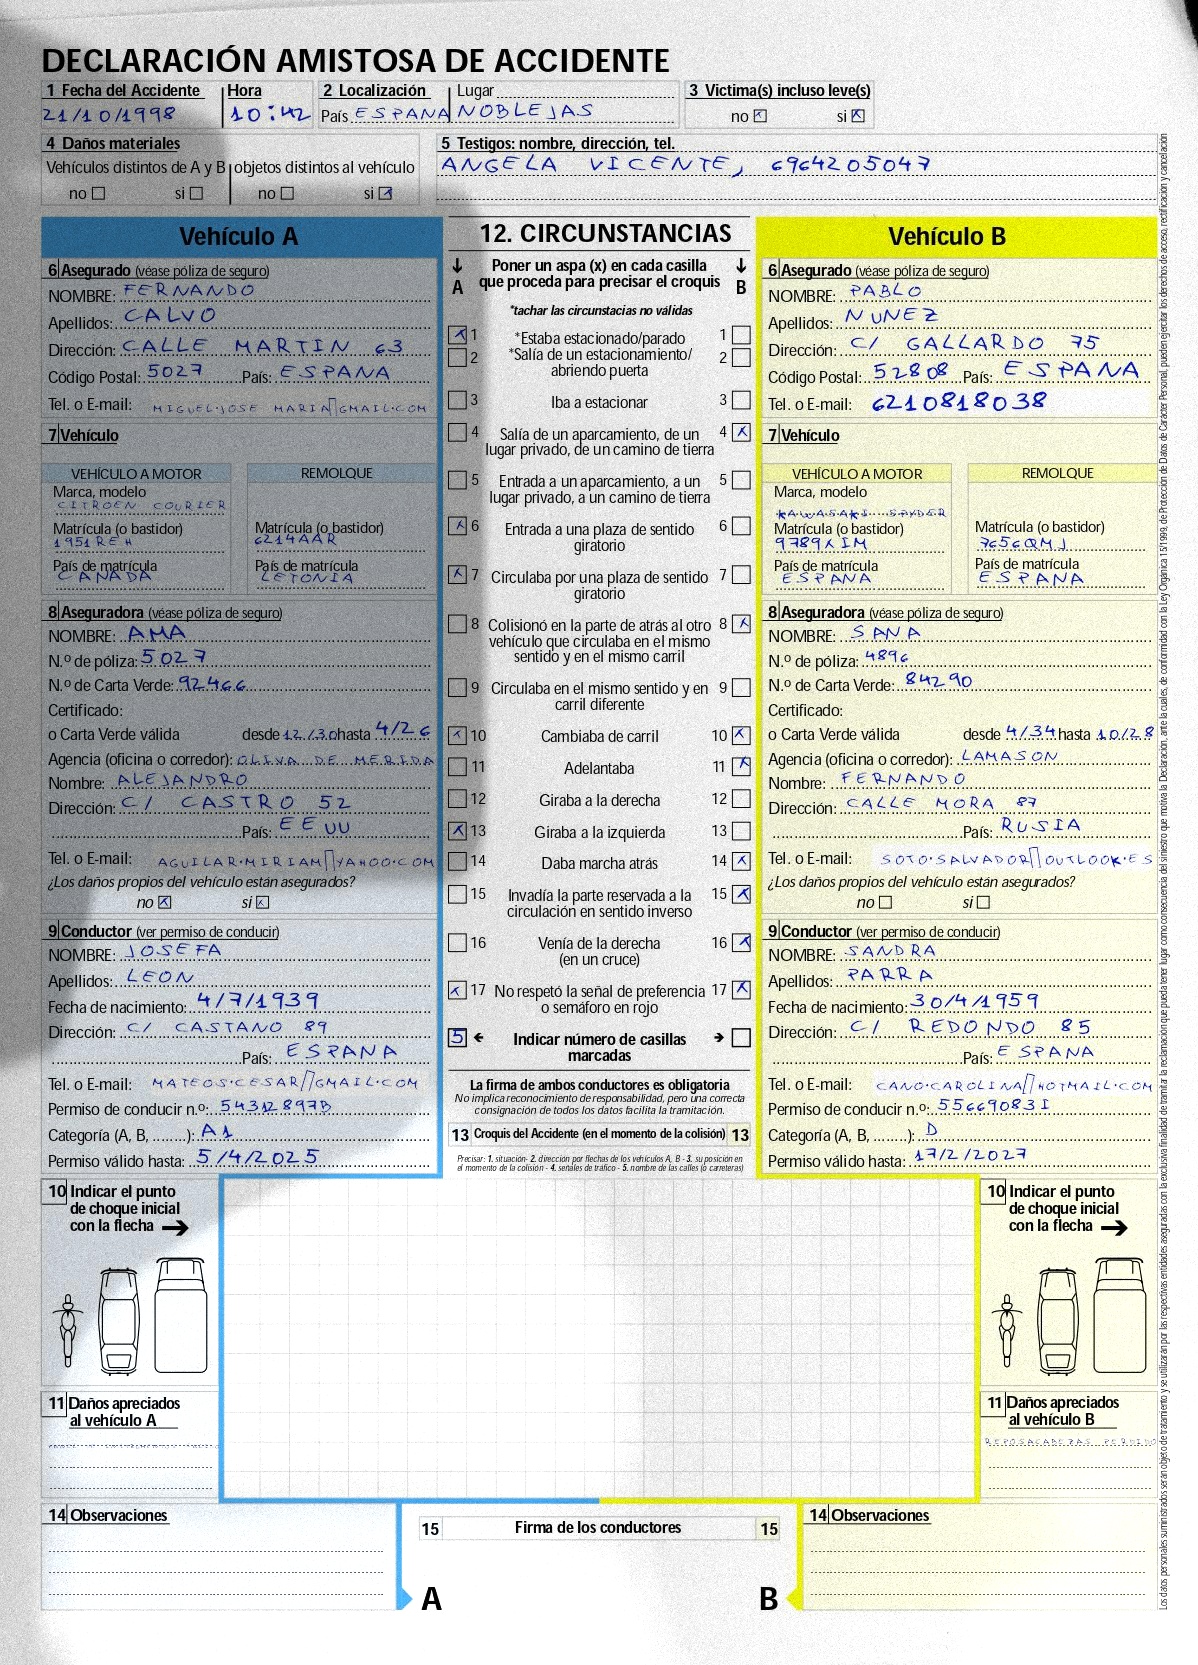 DECLARACIÓN AMISTOSA DE ACCIDENTE
1 Fecha del Accidente Hora 2 Localización Lugar 3 Victima(s) incluso leve(s)
21/10/1998 10:42 País ESPANA NOBLEJAS no si
4 Daños materiales 5 Testigos: nombre, dirección, tel.
Vehículos distintos de A y B objetos distintos al vehículo ANGELA VICENTE, 6964205047
no si no si
Vehículo A
6 Asegurado (véase póliza de seguro)
NOMBRE: FERNANDO
Apellidos: CALVO
Dirección: CALLE MARTIN 63
Código Postal: 5027 País: ESPANA
Tel. o E-mail: MIGUEL.JOSE MARIA GMAIL.COM
7 Vehículo
VEHÍCULO A MOTOR REMOLQUE
Marca, modelo
CITROEN COURIER
Matrícula (o bastidor) Matrícula (o bastidor)
1951REH 6214AAR
País de matrícula País de matrícula
CANADA LETONIA
8 Aseguradora (véase póliza de seguro)
NOMBRE: AMA
N.º de póliza: 5027
N.º de Carta Verde: 92466
Certificado:
o Carta Verde válida desde 12/30 hasta 4/26
Agencia (oficina o corredor): OLIVA DE MERIDA
Nombre: ALEJANDRO
Dirección: C/ CASTRO 52
País: EEUU
Tel. o E-mail: AGUILAR.MIRIAM YAHOO.COM
¿Los daños propios del vehículo están asegurados?
no si
9 Conductor (ver permiso de conducir)
NOMBRE: JOSEFA
Apellidos: LEON
Fecha de nacimiento: 4/7/1939
Dirección: C/ CASTANO 89
País: ESPANA
Tel. o E-mail: MATEOS.CESAR GMAIL.COM
Permiso de conducir n.º: 54312897B
Categoría (A, B, ........): A1
Permiso válido hasta: 5/4/2025
12. CIRCUNSTANCIAS
A Poner un aspa (x) en cada casilla que proceda para precisar el croquis B
*tachar las circunstacias no válidas
1 *Estaba estacionado/parado 1
2 *Salía de un estacionamiento/ abriendo puerta 2
3 Iba a estacionar 3
4 Salía de un aparcamiento, de un lugar privado, de un camino de tierra 4
5 Entrada a un aparcamiento, a un lugar privado, a un camino de tierra 5
6 Entrada a una plaza de sentido giratorio 6
7 Circulaba por una plaza de sentido giratorio 7
8 Colisionó en la parte de atrás al otro vehículo que circulaba en el mismo sentido y en el mismo carril 8
9 Circulaba en el mismo sentido y en carril diferente 9
10 Cambiaba de carril 10
11 Adelantaba 11
12 Giraba a la derecha 12
13 Giraba a la izquierda 13
14 Daba marcha atrás 14
15 Invadía la parte reservada a la circulación en sentido inverso 15
16 Venía de la derecha (en un cruce) 16
17 No respetó la señal de preferencia o semáforo en rojo 17
5 Indicar número de casillas marcadas
La firma de ambos conductores es obligatoria
No implica reconocimiento de responsabilidad, pero una correcta consignación de todos los datos facilita la tramitación.
13 Croquis del Accidente (en el momento de la colisión) 13
Precisar: 1. situación- 2. dirección por flechas de los vehículos A, B - 3. su posición en el momento de la colisión - 4. señales de tráfico - 5. nombre de las calles (o carreteras)
Vehículo B
6 Asegurado (véase póliza de seguro)
NOMBRE: PABLO
Apellidos: NUNEZ
Dirección: C/ GALLARDO 75
Código Postal: 52808 País: ESPANA
Tel. o E-mail: 6210818038
7 Vehículo
VEHÍCULO A MOTOR REMOLQUE
Marca, modelo
KAWASAKI SPYDER
Matrícula (o bastidor) Matrícula (o bastidor)
9789XIM 7656QMJ
País de matrícula País de matrícula
ESPANA ESPANA
8 Aseguradora (véase póliza de seguro)
NOMBRE: SANA
N.º de póliza: 4896
N.º de Carta Verde: 84290
Certificado:
o Carta Verde válida desde 4/34 hasta 10/28
Agencia (oficina o corredor): LAMASON
Nombre: FERNANDO
Dirección: CALLE MORA 87
País: RUSIA
Tel. o E-mail: SOTO.SALVADOR OUTLOOK.ES
¿Los daños propios del vehículo están asegurados?
no si
9 Conductor (ver permiso de conducir)
NOMBRE: SANDRA
Apellidos: PARRA
Fecha de nacimiento: 30/4/1959
Dirección: C/ REDONDO 85
País: ESPANA
Tel. o E-mail: CANO.CAROLINA HOTMAIL.COM
Permiso de conducir n.º: 55669083I
Categoría (A, B, ........): D
Permiso válido hasta: 17/2/2027
10 Indicar el punto de choque inicial con la flecha
10 Indicar el punto de choque inicial con la flecha
11 Daños apreciados al vehículo A
11 Daños apreciados al vehículo B
REPOSACABEZAS PERDIDO
14 Observaciones
15 Firma de los conductores 15
14 Observaciones
A B